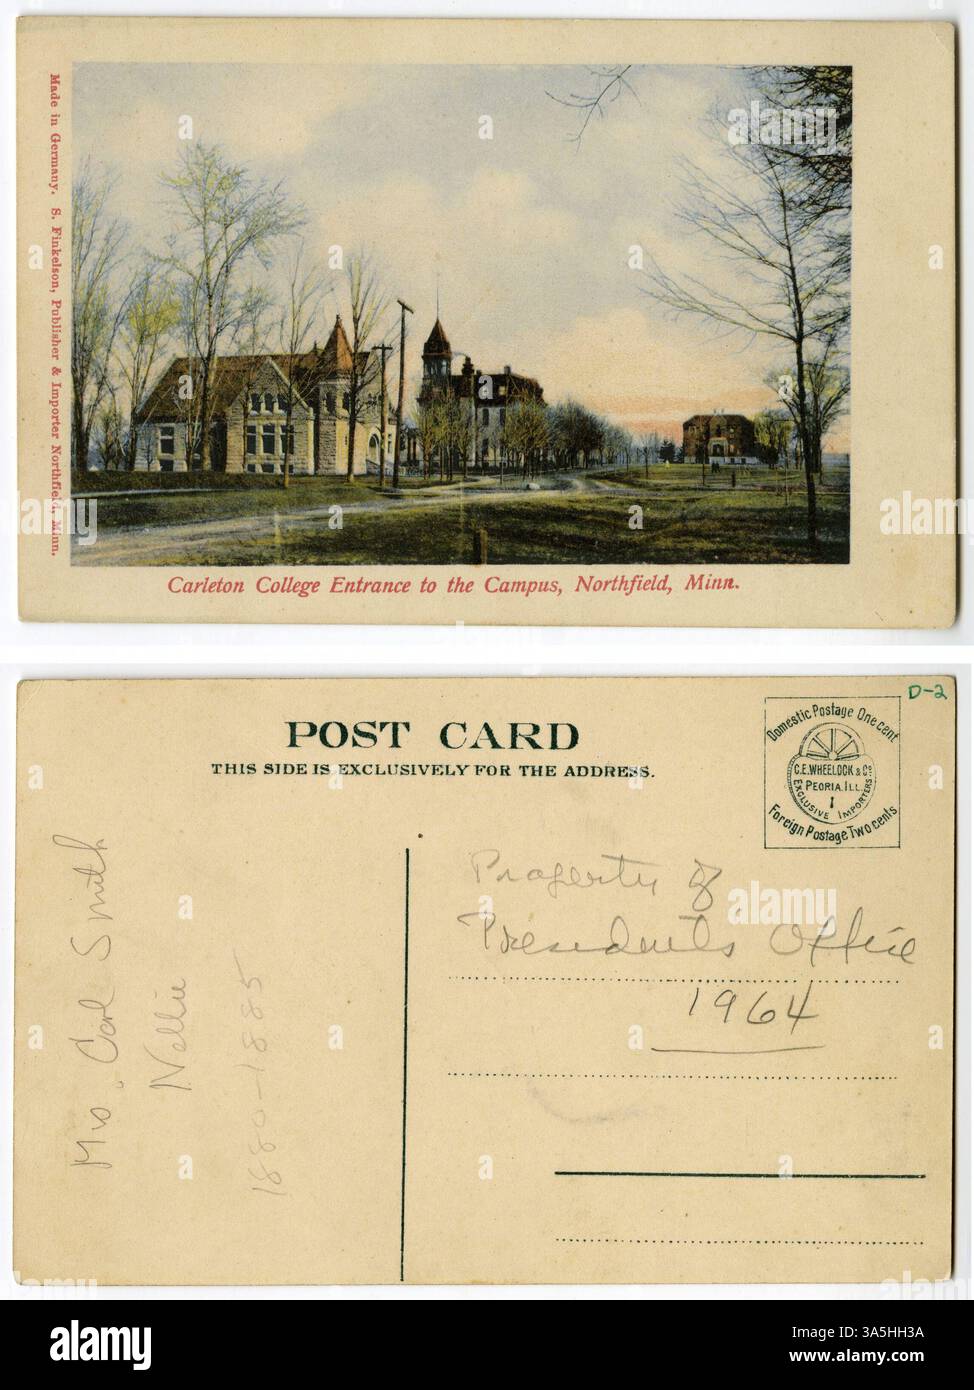 Made in Germany. S. Finkelson, Publisher & Importer Northfield, Minn.
Carleton College Entrance to the Campus, Northfield, Minn.
D-2
POST CARD
THIS SIDE IS EXCLUSIVELY FOR THE ADDRESS.
Domestic Postage One cent
C.E. WHEELOCK & Co.
PEORIA. ILL.
EXCLUSIVE IMPORTERS
Foreign Postage Two cents
Mrs. Carl Smith
Nellie
1880-1885
Property of
Presidents Office
1964
a alamy
alamy
Image ID: 3A5HH3A
www.alamy.com